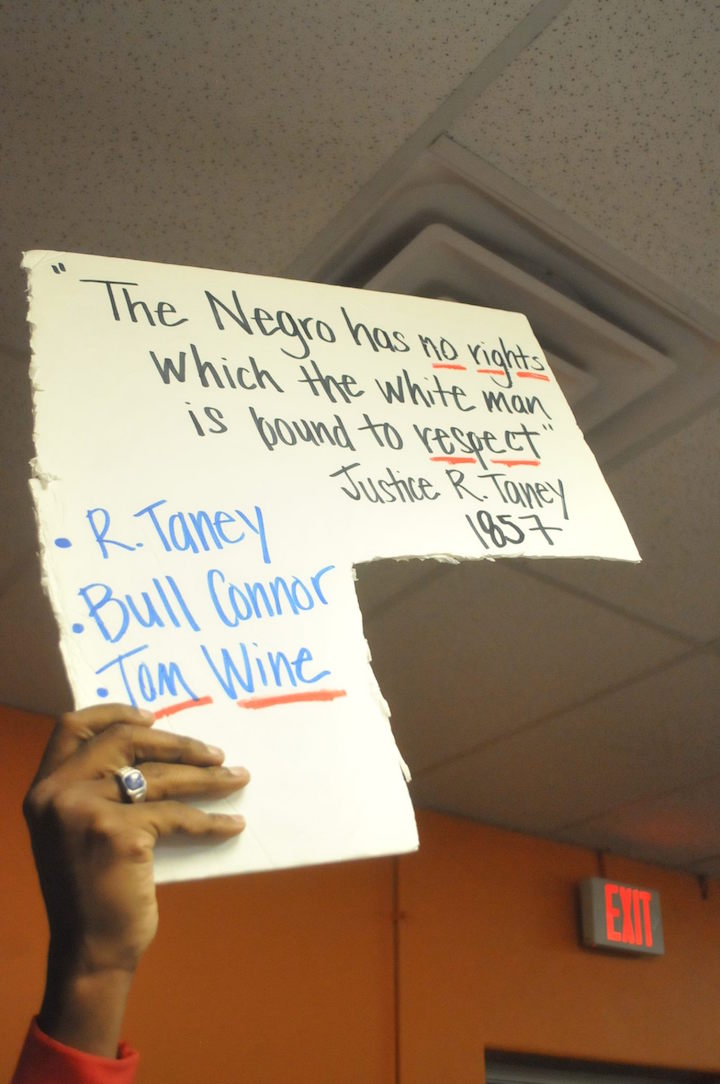 "The Negro has no rights
which the white man
is bound to respect"
Justice R. Taney
1857
• R. Taney
• Bull Connor
• Tom Wine
EXIT